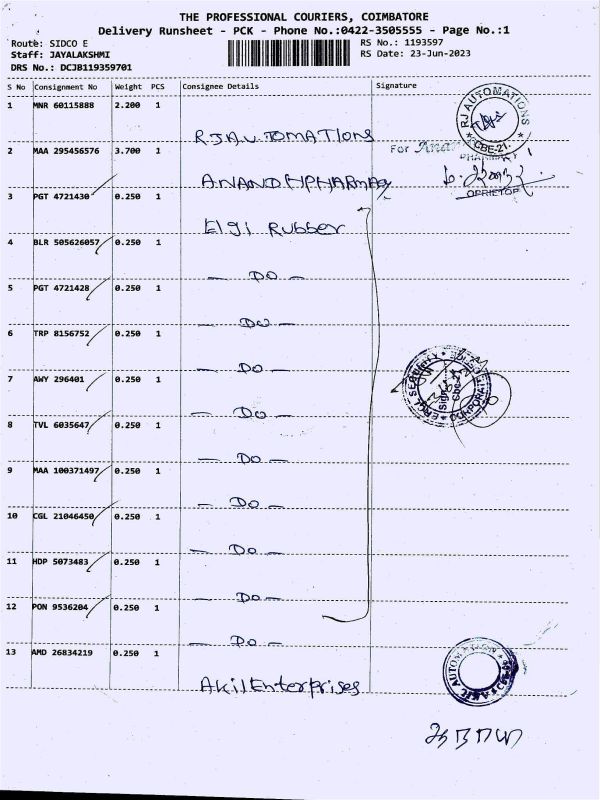 THE PROFESSIONAL COURIERS, COIMBATORE
Delivery Runsheet - PCK - Phone No.:0422-3505555 - Page No.:1
Route: SIDCO E RS No.: 1193597
Staff: JAYALAKSHMI RS Date: 23-Jun-2023
DRS No.: DCJB119359701
S No Consignment No Weight PCS Consignee Details Signature
1 MNR 60115888 2.200 1
RJAUTOMATIONS
RJ AUTOMATIONS
CBE-21.
2 MAA 295456576 3.700 1
For
ANANDHPHARMACY
OPRIETOR
3 PGT 4721430 0.250 1
Elgi Rubber
4 BLR 505626057 0.250 1
— DO —
5 PGT 4721428 0.250 1
— DO —
6 TRP 8156752 0.250 1
— DO —
7 AWY 296401 0.250 1
— DO —
ERGL SECURITY
CORPORATE
Sign
Cbe-21
8 TVL 6035647 0.250 1
— DO —
9 MAA 100371497 0.250 1
— DO —
10 CGL 21046450 0.250 1
— DO —
11 HDP 5073483 0.250 1
— DO —
12 PON 9536204 0.250 1
— DO —
13 AMD 26834219 0.250 1
Akil Enterprises